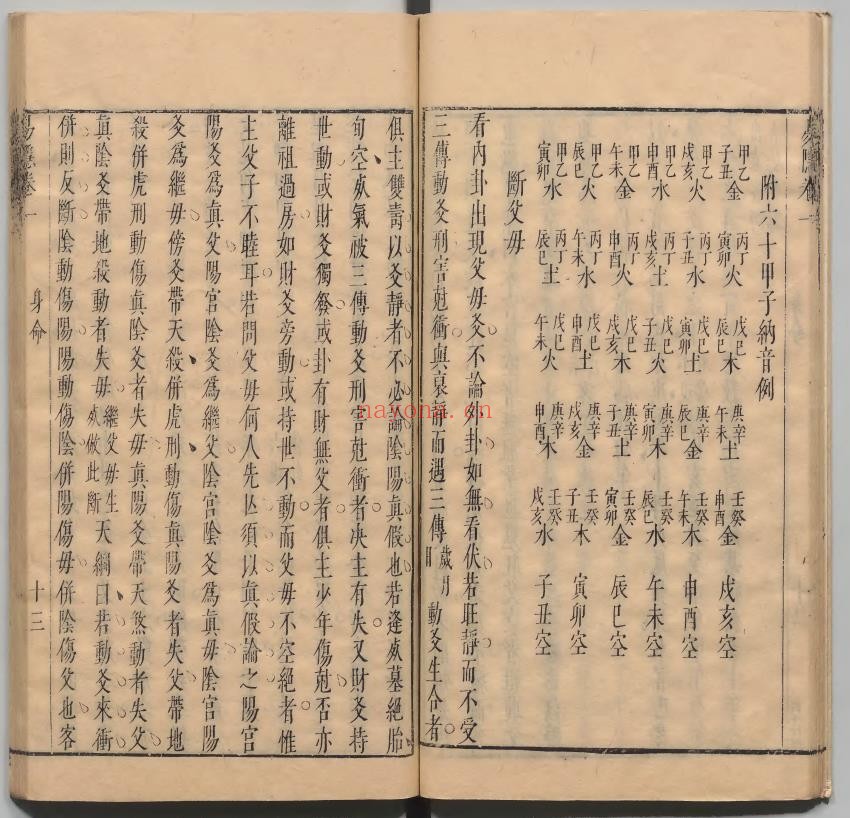 易隱卷一
附六十甲子納音例
甲乙子丑金 丙丁寅卯火 戊己辰巳木 庚辛午未土 壬癸申酉金 戌亥空
甲乙戌亥火 丙丁子丑水 戊己寅卯土 庚辛辰巳金 壬癸午未木 申酉空
甲乙申酉水 丙丁戌亥土 戊己子丑火 庚辛寅卯木 壬癸辰巳水 午未空
甲乙午未金 丙丁申酉火 戊己戌亥木 庚辛子丑土 壬癸寅卯金 辰巳空
甲乙辰巳火 丙丁午未水 戊己申酉土 庚辛戌亥金 壬癸子丑木 寅卯空
甲乙寅卯水 丙丁辰巳土 戊己午未火 庚辛申酉木 壬癸戌亥水 子丑空
斷父母
看內卦出現父母爻不論外卦如無看伏若旺靜而不受
三傳動爻刑害尅衝與衰靜而遇三傳歲月日動爻生合者
俱主雙壽以爻靜者不必論陰陽眞假也若逢死墓絕胎
旬空死氣被三傳動爻刑害尅衝者决主有失又財爻持
世動或財爻獨發或卦有財無父者俱主少年傷尅否亦
離祖過房如財爻旁動或持世不動而父母不空絕者惟
主父子不睦耳若問父母何人先亾須以眞假論之陽宮
陽爻爲眞父陽宮陰爻爲繼父陰宮陰爻爲眞母陰宮陽
爻爲繼母傍爻帶天殺併虎刑動傷眞陽爻者失父帶地
殺併虎刑動傷眞陰爻者失母眞陽爻帶天煞動者失父
眞陰爻帶地殺動者失母繼父母生死倣此斷天綱曰若動爻來衝
併則反斷陰動傷陽陽動傷陰併陽傷母併陰傷父也客
易隱卷一 身命 十三
nayona.cn